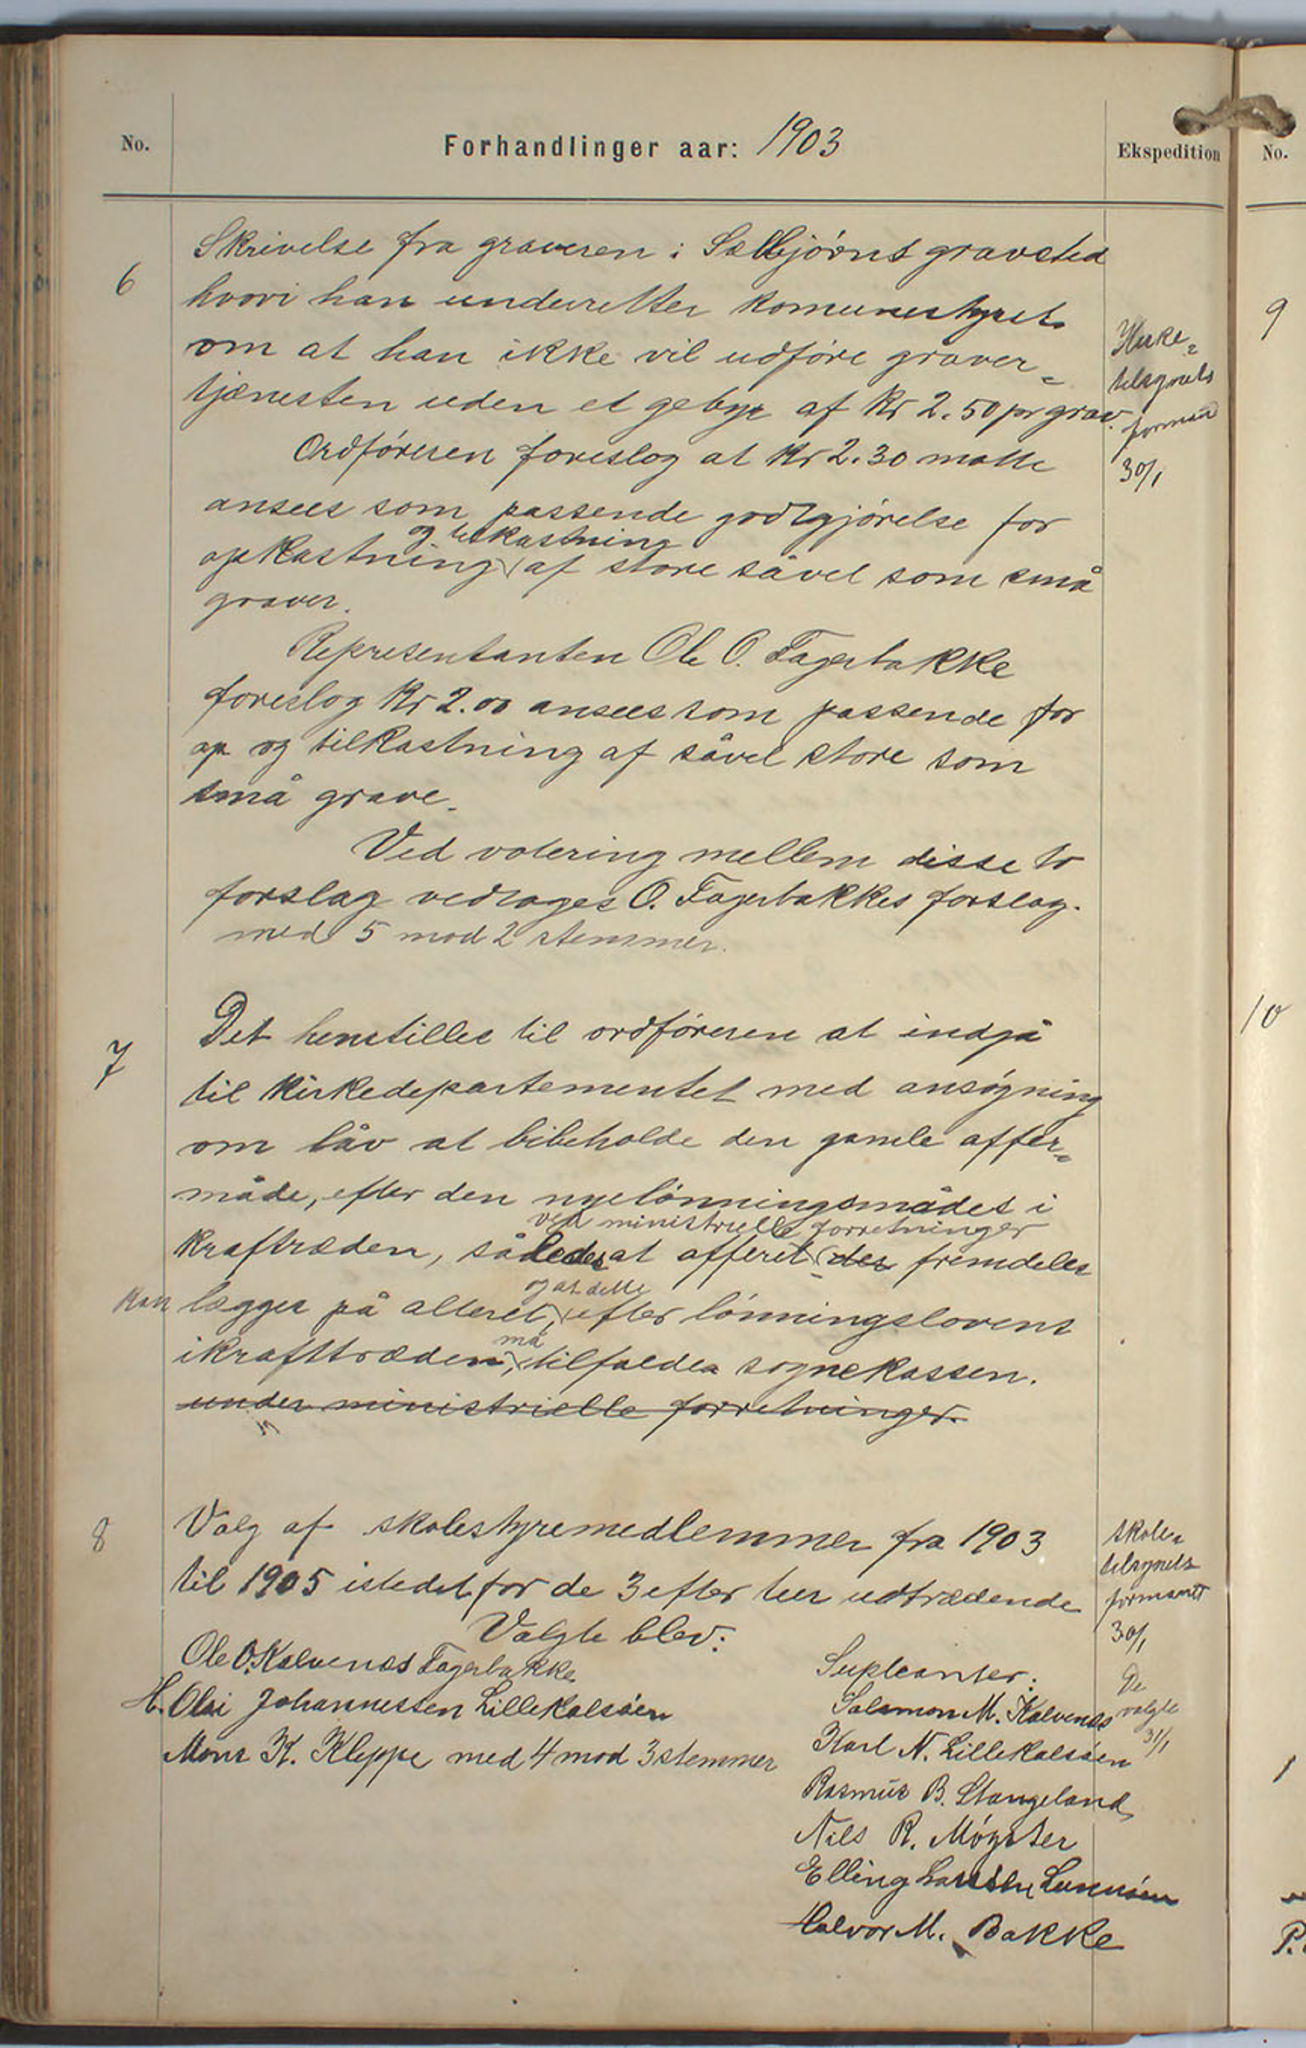 No.
Forhandlinger aar: 1903
Ekspedition
No.
6
Skrivelse fra graveren i Sælbjørns gravsted
hvori han underretter komunestyret
om at han ikke vil udføre graver-
tjænesten uden et gebyr af Kr 2.50 pr grav.
Kirke-
tilsynets
formand
30/1
Ordføreren foreslog at Kr 2.30 matte
ansees som passende godtgjørelse for
og tilkastning
opkastning af store såvel som små
graver.
Representanten Ole O. Fagerbakke
foreslog Kr 2.00 ansees som passende for
op og tilkastning af såvel store som
små grave.
Ved votering mellem disse to
forslag vedtages O. Fagerbakkes forslag.
med 5 mod 2 stemmer.
7
Det henstilles til ordføreren at indgå
til kirkedepartementet med ansøgning
om låv at bibeholde den gamle offer-
måde, efter den nye lønningsmådes i
ved ministrielle forretninger
krafttræden, således at offeret des fremdeles
og at dette
kan lægges på alteret, efter lønningslovens
må
ikrafttræden, tilfaldea sognekassen.
under ministrielle forretninger.
8
Valg af skolestyremedlemmer fra 1903
til 1905 istedet for de 3 efter tur udtrædende
Valgte blev:
skole-
tilsynets
formand
30/1
Ole O. Kalvenes Fagerbakke
H. Olai Johannessen Lillekalsøen
Mons K. Kleppe med 4 mod 3 stemmer
Supleanter:
Salamon M. Kalvenes
Karl N. Lillekalsøen
Rasmus B. Stangeland
Nils R. Møgster
Elling Larssen Lunnøen
Halvor M. Bakke
De
valgte
31/1
9
10
1
P.